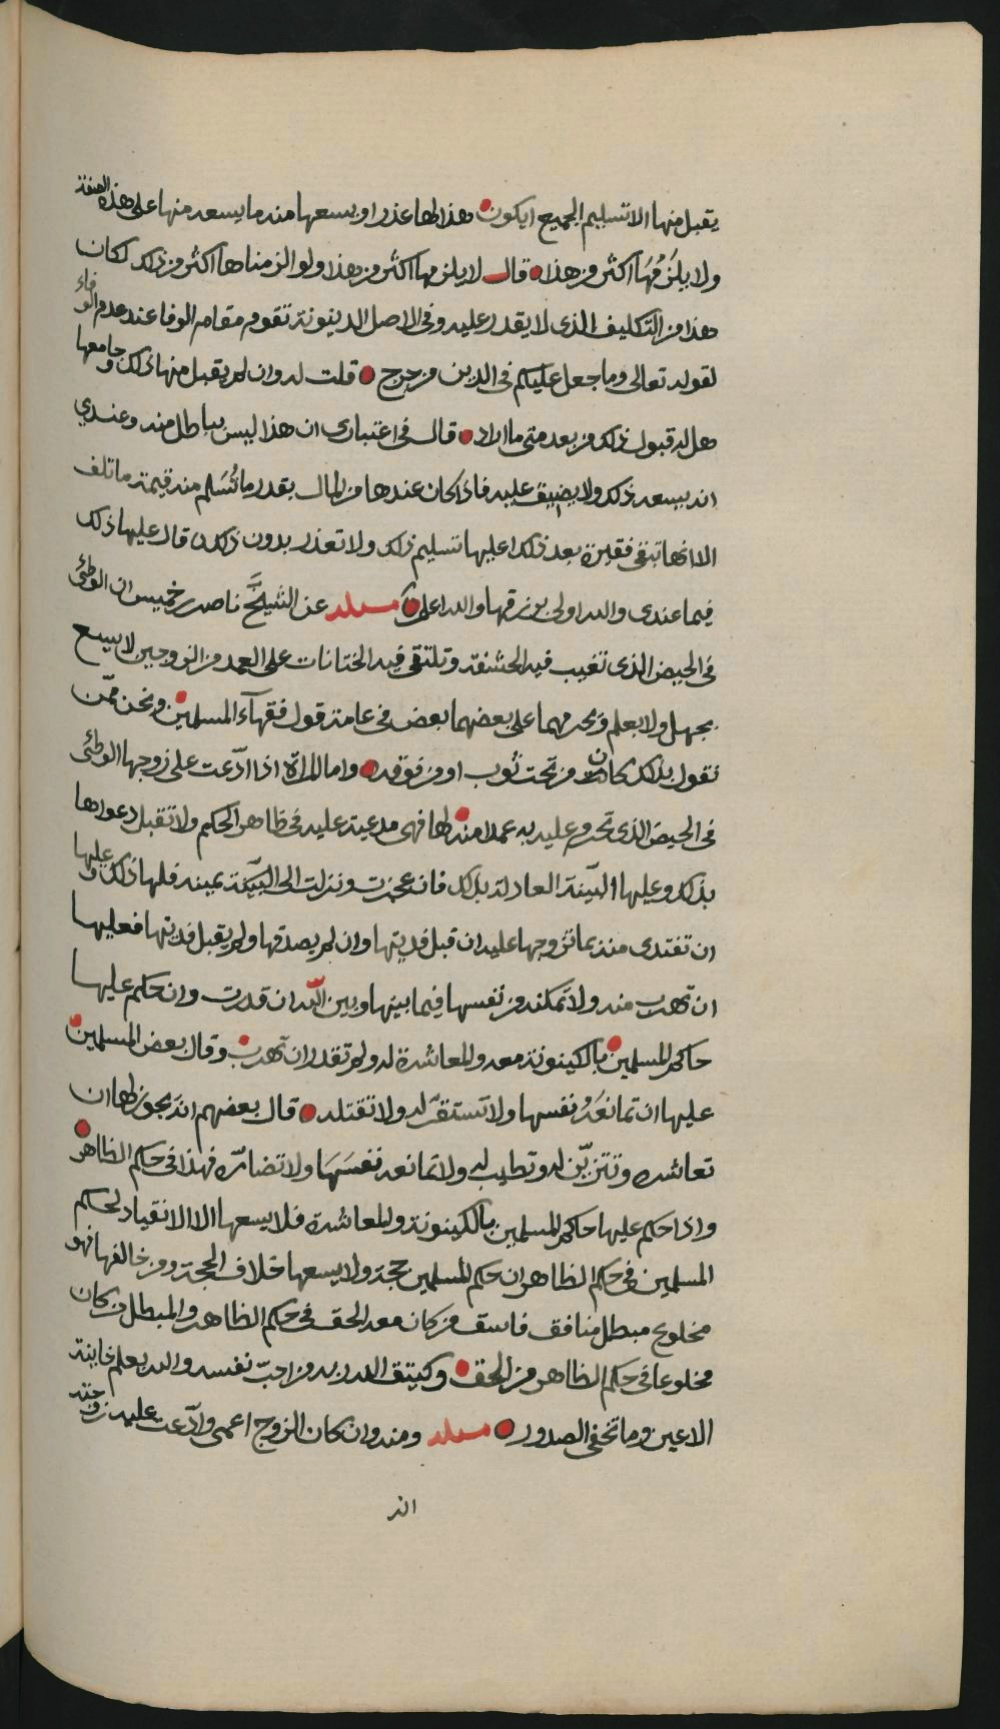 يقبل منها الا تسليم الجميع ايكون هذا لها عذر او يسعها منه ما يسعه منها على هذه الصفة
ولا يلزمها اكثر من هذا قال لا يلزمها اكثر من هذا ولو الزمناها اكثر من ذلك لكان
هذا من التكليف الذى لا يقدر عليه وفى الاصل الدينونة تقوم مقام الوفا عند عدم الوفاء
لقوله تعالى وما جعل عليكم فى الدين من حرج قلت له وان لم يقبل منها ذلك وجامعها
هل له قبول ذلك من بعد متى ما اراد قال فى اعتبارى ان هذا ليس بباطل منه وعندي
انه يسعه ذلك ولا يضيق عليه فاذا كان عندها من المال بقدر ما تسلم منه قيمة ما تلف
الا انها تبقى فقيرة بعد ذلك اعليها تسليم ذلك ولا تعذر بدون ذلك قال عليها ذلك
فيما عندى والله اولى برزقها والله اعلم مسله عن الشيخ ناصر بن خميس ان الوطئ
فى الحيض الذى تغيب فيه الحشفة وتلتقى فيه الختانات على العمد من الزوجين لا يسع
بجهل ولا بعلم ويحرمهما على بعضهما بعض فى عامة قول فقهآء المسلمين ونحن ممّن
نقول بذلك كان من تحت ثوب او من فوقه واما المراة اذا ادّعت على زوجها الوطئ
فى الحيض الذى تحرم عليه به عمدا منه لها فهى مدعية عليه فى ظاهر الحكم ولا تقبل دعواها
بذلك وعليها البيّنة العادلة بذلك فان عجزت ونزلت الى البيّنة يمينه فلها ذلك وعليها
ان تفتدى منه بما تزوجها عليه ان قبل فديتها وان لم يصدقها ولم يقبل فديتها فعليها
ان تهرب منه ولا تمكنه من نفسها فيما بينها وبين الله ان قدرت وان حكم عليها
حاكم المسلمين بالكينونة معه والمعاشرة له ولم تقدر ان تهرب وقال بعض المسلمين
عليها ان تمانعه نفسها ولا تستقرّ له ولا تقتله قال بعضهم انه يجوز لها ان
تعاشره وتتزيّن له وتطيب له ولا تمانعه نفسها ولا تضارّه فهذا فى حكم الظاهر
واذا حكم عليها حاكم المسلمين بالكينونة والمعاشرة فلا يسعها الا الانقياد لحكم
المسلمين فى حكم الظاهر ان حكم المسلمين حجة ولا يسعها خلاف الحجة ومن خالفها فهو
مخلوع مبطل منافق فاسق من كان معه الحق فى حكم الظاهر والمبطل من كان
مخلوعا فى حكم الظاهر من الحق وكيتق الله ربه من احبّ نفسه والله يعلم خاينة
الاعين وما تخفى الصدور مسله ومنه وان كان الزوج اعمى وادّعت عليه زوجته
انه